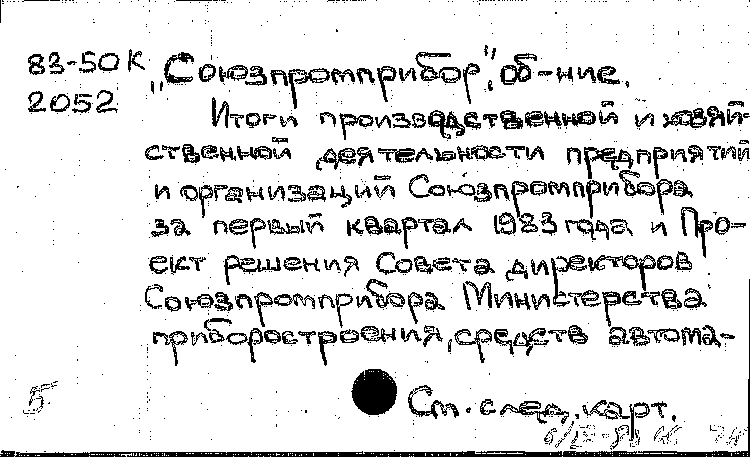 83-50К
2052
„Союзпромприбор", об-ние.
Итоги производственной и хозяй-
ственной деятельности предприятий
и организаций Союзпромприбора
за первый квартал 1983 года и Про-
ект решения Совета директоров
Союзпромприбора Министерства
приборостроения, средств автома-
5
См. след. карт.